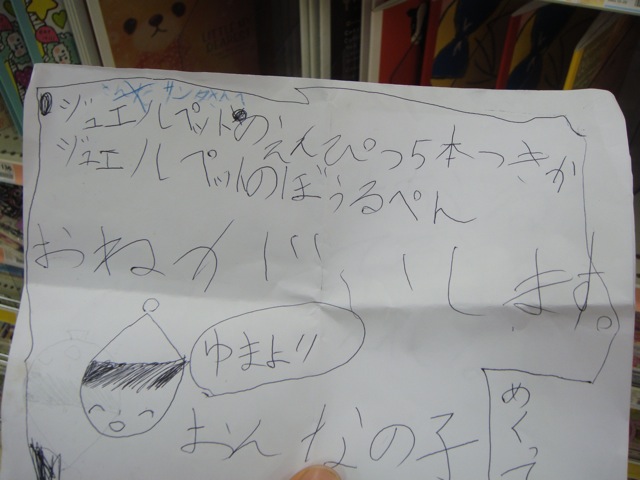 サンタさんへ
ジュエルペットの
えんぴつ5本つきか
ジュエルペットのぼうるぺん
おねがいします。
ゆまより
おんなの子
めくって